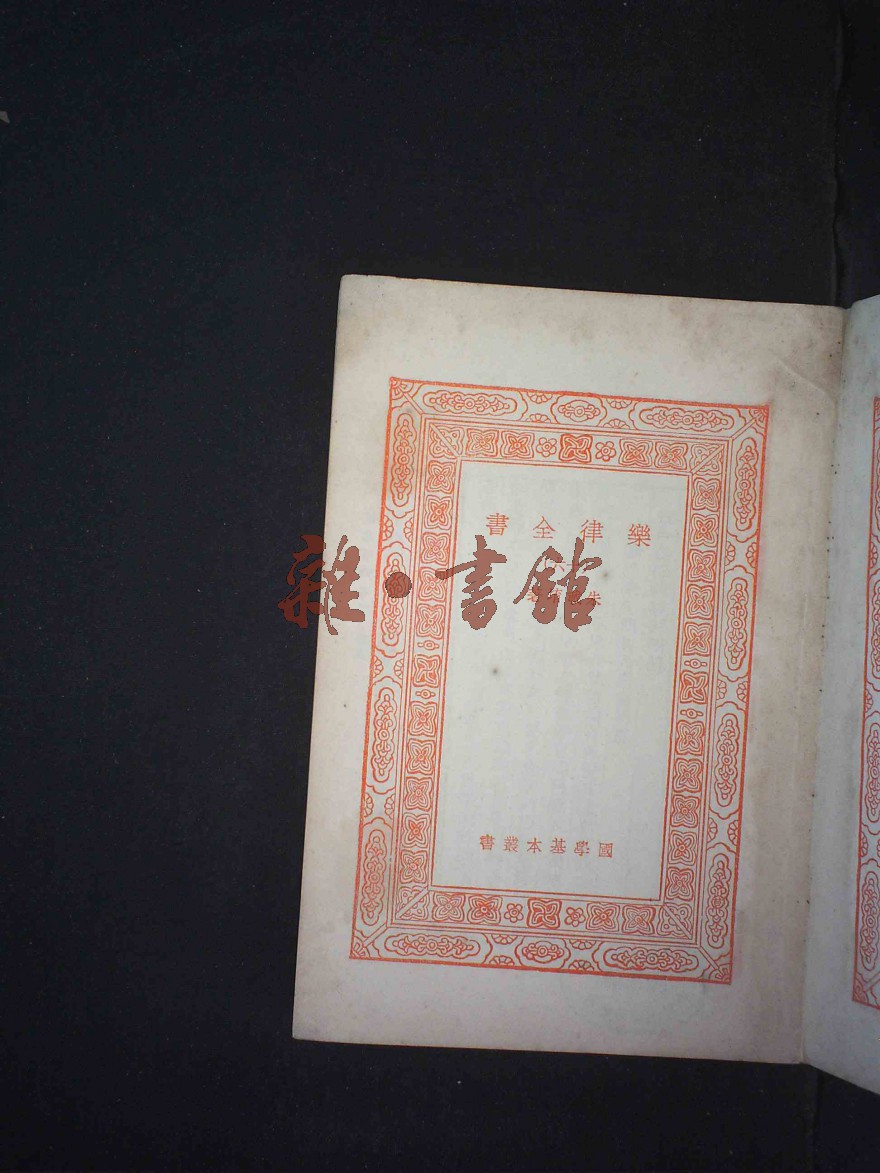 樂律全書
朱
國學基本叢書
雜·書館